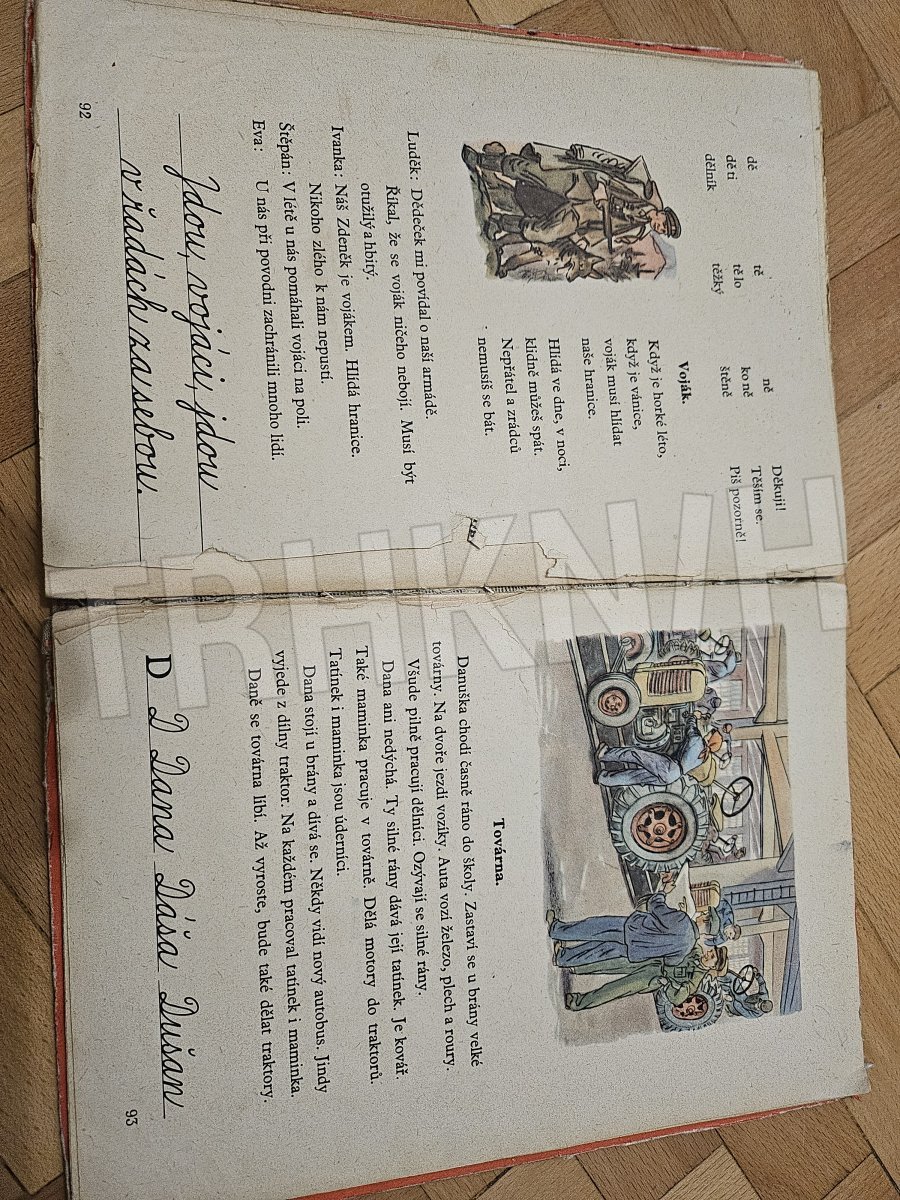 dě tě ně Děkuji!
dě ti tě lo ko ně Těším se.
dělník těžký štěně Piš pozorně!
Voják.
Když je horké léto,
když je vánice,
voják musí hlídat
naše hranice.
Hlídá ve dne, v noci,
klidně můžeš spát.
Nepřátel a zrádců
nemusíš se bát.
Luděk: Dědeček mi povídal o naší armádě.
Říkal, že se voják ničeho nebojí. Musí být
otužilý a hbitý.
Ivanka: Náš Zdeněk je vojákem. Hlídá hranice.
Nikoho zlého k nám nepustí.
Štěpán: V létě u nás pomáhali vojáci na poli.
Eva: U nás při povodni zachránili mnoho lidí.
Jdou, vojáci, jdou
v řadách za sebou.
92
Továrna.
Danuška chodí časně ráno do školy. Zastaví se u brány velké
továrny. Na dvoře jezdí vozíky. Auta vozí železo, plech a roury.
Všude pilně pracují dělníci. Ozývají se silné rány.
Dana ani nedýchá. Ty silné rány dává její tatínek. Je kovář.
Také maminka pracuje v továrně. Dělá motory do traktorů.
Tatínek i maminka jsou úderníci.
Dana stojí u brány a dívá se. Někdy vidí nový autobus. Jindy
vyjede z dílny traktor. Na každém pracoval tatínek i maminka.
Daně se továrna líbí. Až vyroste, bude také dělat traktory.
D D Dana Dáša Dušan
93
TRHKNIH